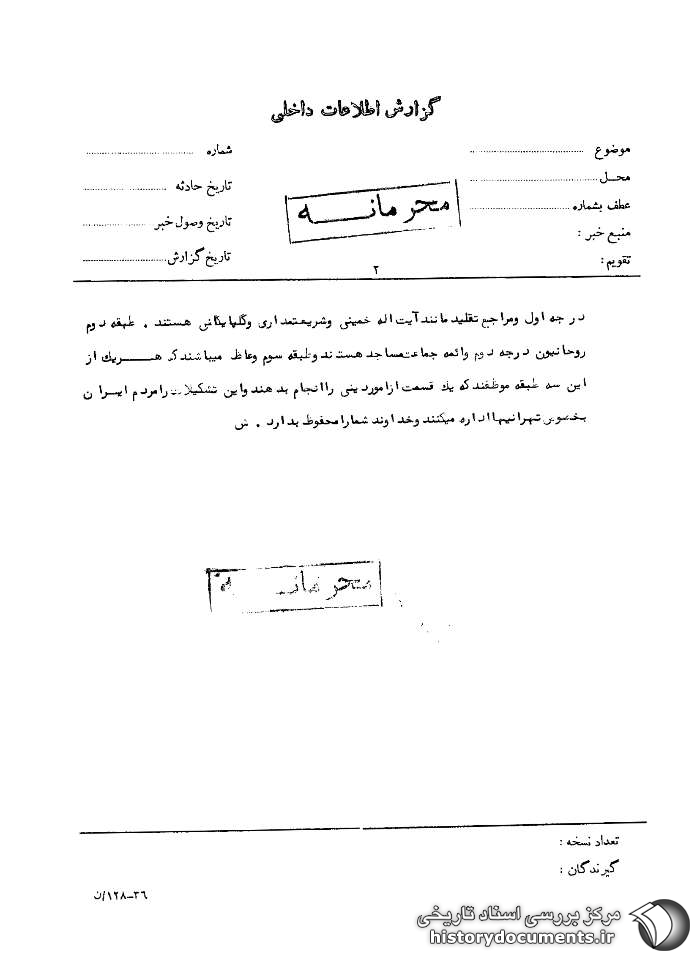 گزارش اطلاعات داخلی
موضوع
شماره
محل
تاریخ حادثه
عطف بشماره
تاریخ وصول خبر
منبع خبر :
تاریخ گزارش
تقویم :
محرمانه
۲
درجه اول ومراجع تقلید مانند آیت اله خمینی وشریعتمداری وگلپایگانی هستند . طبقه دوم
روحانیون درجه دوم وائمه جماعت مساجد هستند وطبقه سوم وعاظ میباشند که هریك از
این سه طبقه موظفند که یك قسمت از امور دینی را انجام بدهند واین تشکیلات را مردم ایران
بخصوص تهرانیها اداره میکنند وخداوند شما را محفوظ بدارد . ش
محرمانه
تعداد نسخه :
گیرندگان :
۳۶–۱۲۸/ن
مرکز بررسی اسناد تاریخی
historydocuments.ir